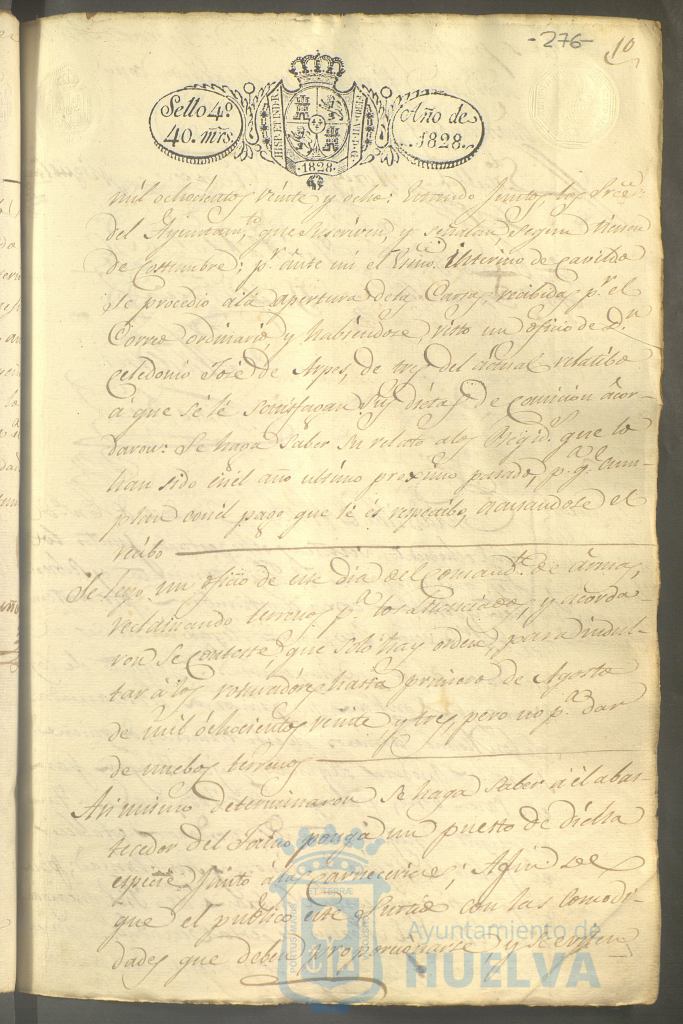 -276-
10
Sello 4º
40. mrs.
HISP. ET IND. R.
FERD. VII. D. G.
1828.
Año de
1828.
mil ochocientos veinte y ocho: Estando Juntos los Sres.
del Ayuntamto. que suscriven, y señalan segun tienen
de Costumbre; pr. ante mi el Essno. interino de cavildo
se procedio a la apertura de las Cartas recibidas pr. el
Correo ordinario, y habiendose visto un oficio de Dn.
Celedonio José de Arpes, de tres del actual relatibo
á que se le satisfagan sus dietas de comision acor-
daron: Se haga saber su relato a los Regids. que lo
han sido en el año ultimo proximo pasado, pa. qe. cum-
plan con el pago que les és respectibo, acusandose el
recibo
Se leyo un oficio de este dia del Comandte. de armas,
reclamando terrenos pa. los Licenciados, y acorda-
ron se conteste, que solo hay orden, para indul-
tar á los roturadores hasta primero de Agosto
de mil ochocientos veinte y tres, pero no pa. dar
de nuebos terrenos
Asi mismo determinaron se haga saber a el abas-
tecedor del Tosino ponga un puesto de dicha
especie junto á la Carneceria; Afin de
que el publico esté surtido con las Comodi-
dades que deben proporcionarse y se eviten
Ayuntamiento de
HUELVA